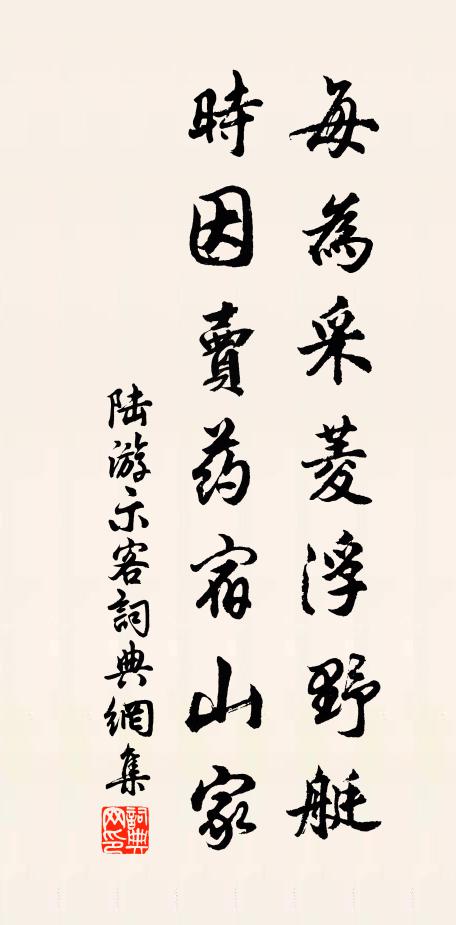 每為采菱浮野艇
時因賣药宿山家
陆游示客詞典網集
詞典網印